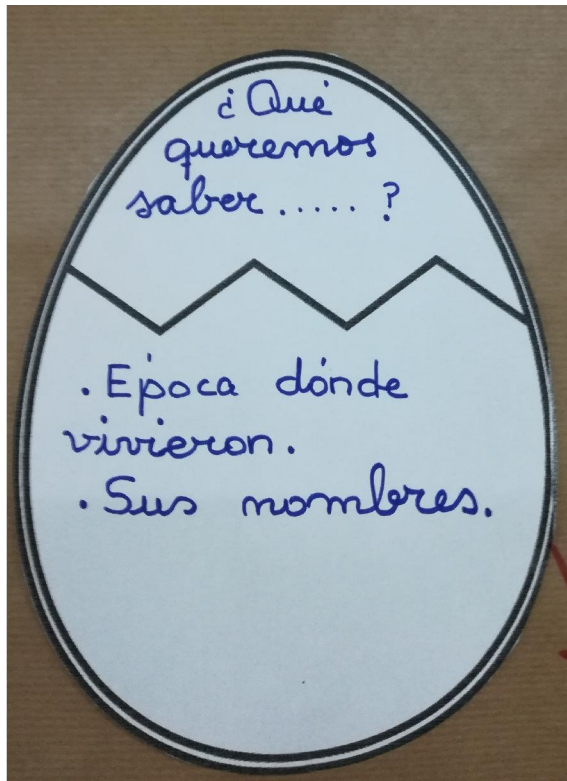 ¿Qué
queremos
saber..... ?
. Época dónde
vivieron.
. Sus nombres.